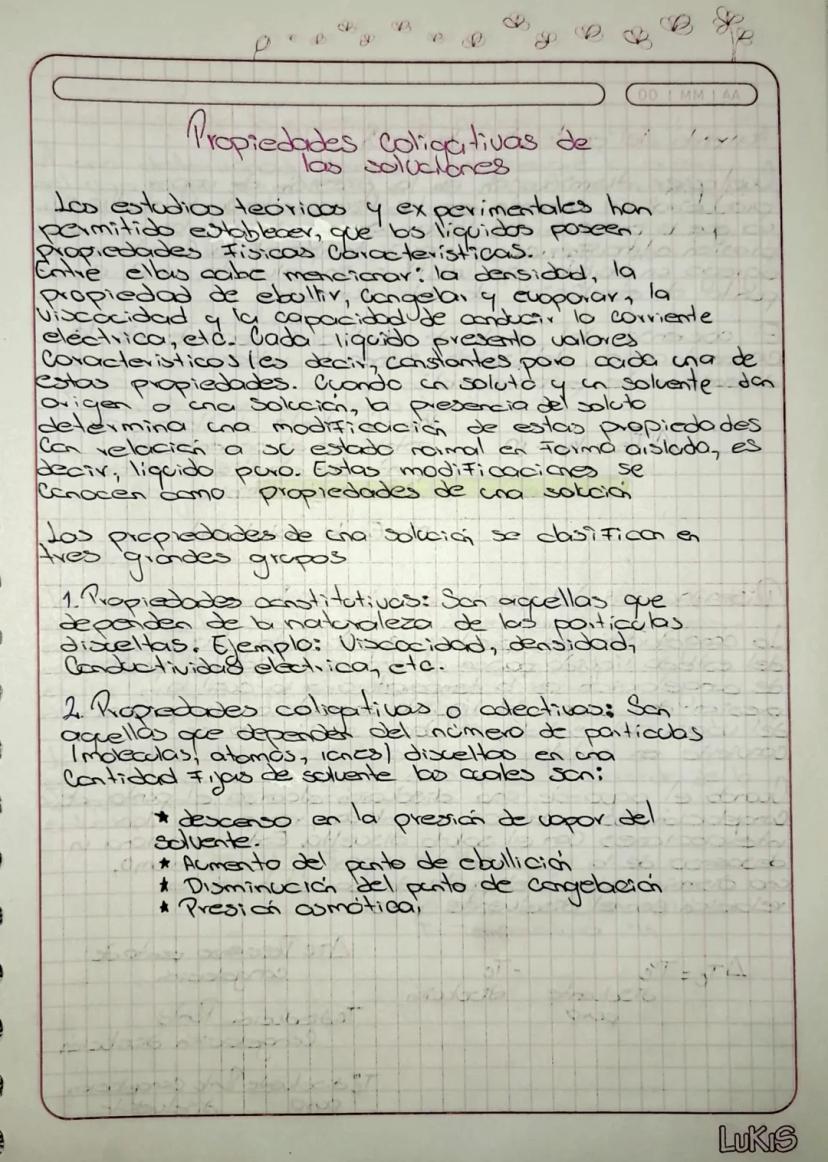 DD | MM | AA
Propiedades coligativas de
las soluciones
Los estudios teóricos y experimentales han
permitido establecer, que los líquidos poseen
propiedades físicas características.
Entre ellas cabe mencionar: la densidad, la
propiedad de ebullir, congelar y evaporar, la
viscocidad y la capacidad de conducir la corriente
eléctrica, etc. Cada líquido presenta valores
característicos (es decir, constantes para cada una de
estas propiedades. Cuando un soluto y un solvente dan
origen a una solución, la presencia del soluto
determina una modificación de estas propiedades
con relación a su estado normal en forma aislada, es
decir, líquido puro. Estas modificaciones se
conocen como propiedades de una solución
Las propiedades de una solución se clasifican en
tres grandes grupos
1. Propiedades constitutivas: Son aquellas que
dependen de la naturaleza de las partículas
disueltas. Ejemplo: Viscocidad, densidad,
Conductividad eléctrica, etc.
2. Propiedades coligativas o colectivas: Son
aquellas que dependen del número de partículas
(moleculas, atomos, iones) disueltas en una
Cantidad Fijas de solvente las cuales son:
* descenso en la presión de vapor del
solvente.
* Aumento del punto de ebullición
* Disminución del punto de congelación
* Presión osmótica,
LUKIS